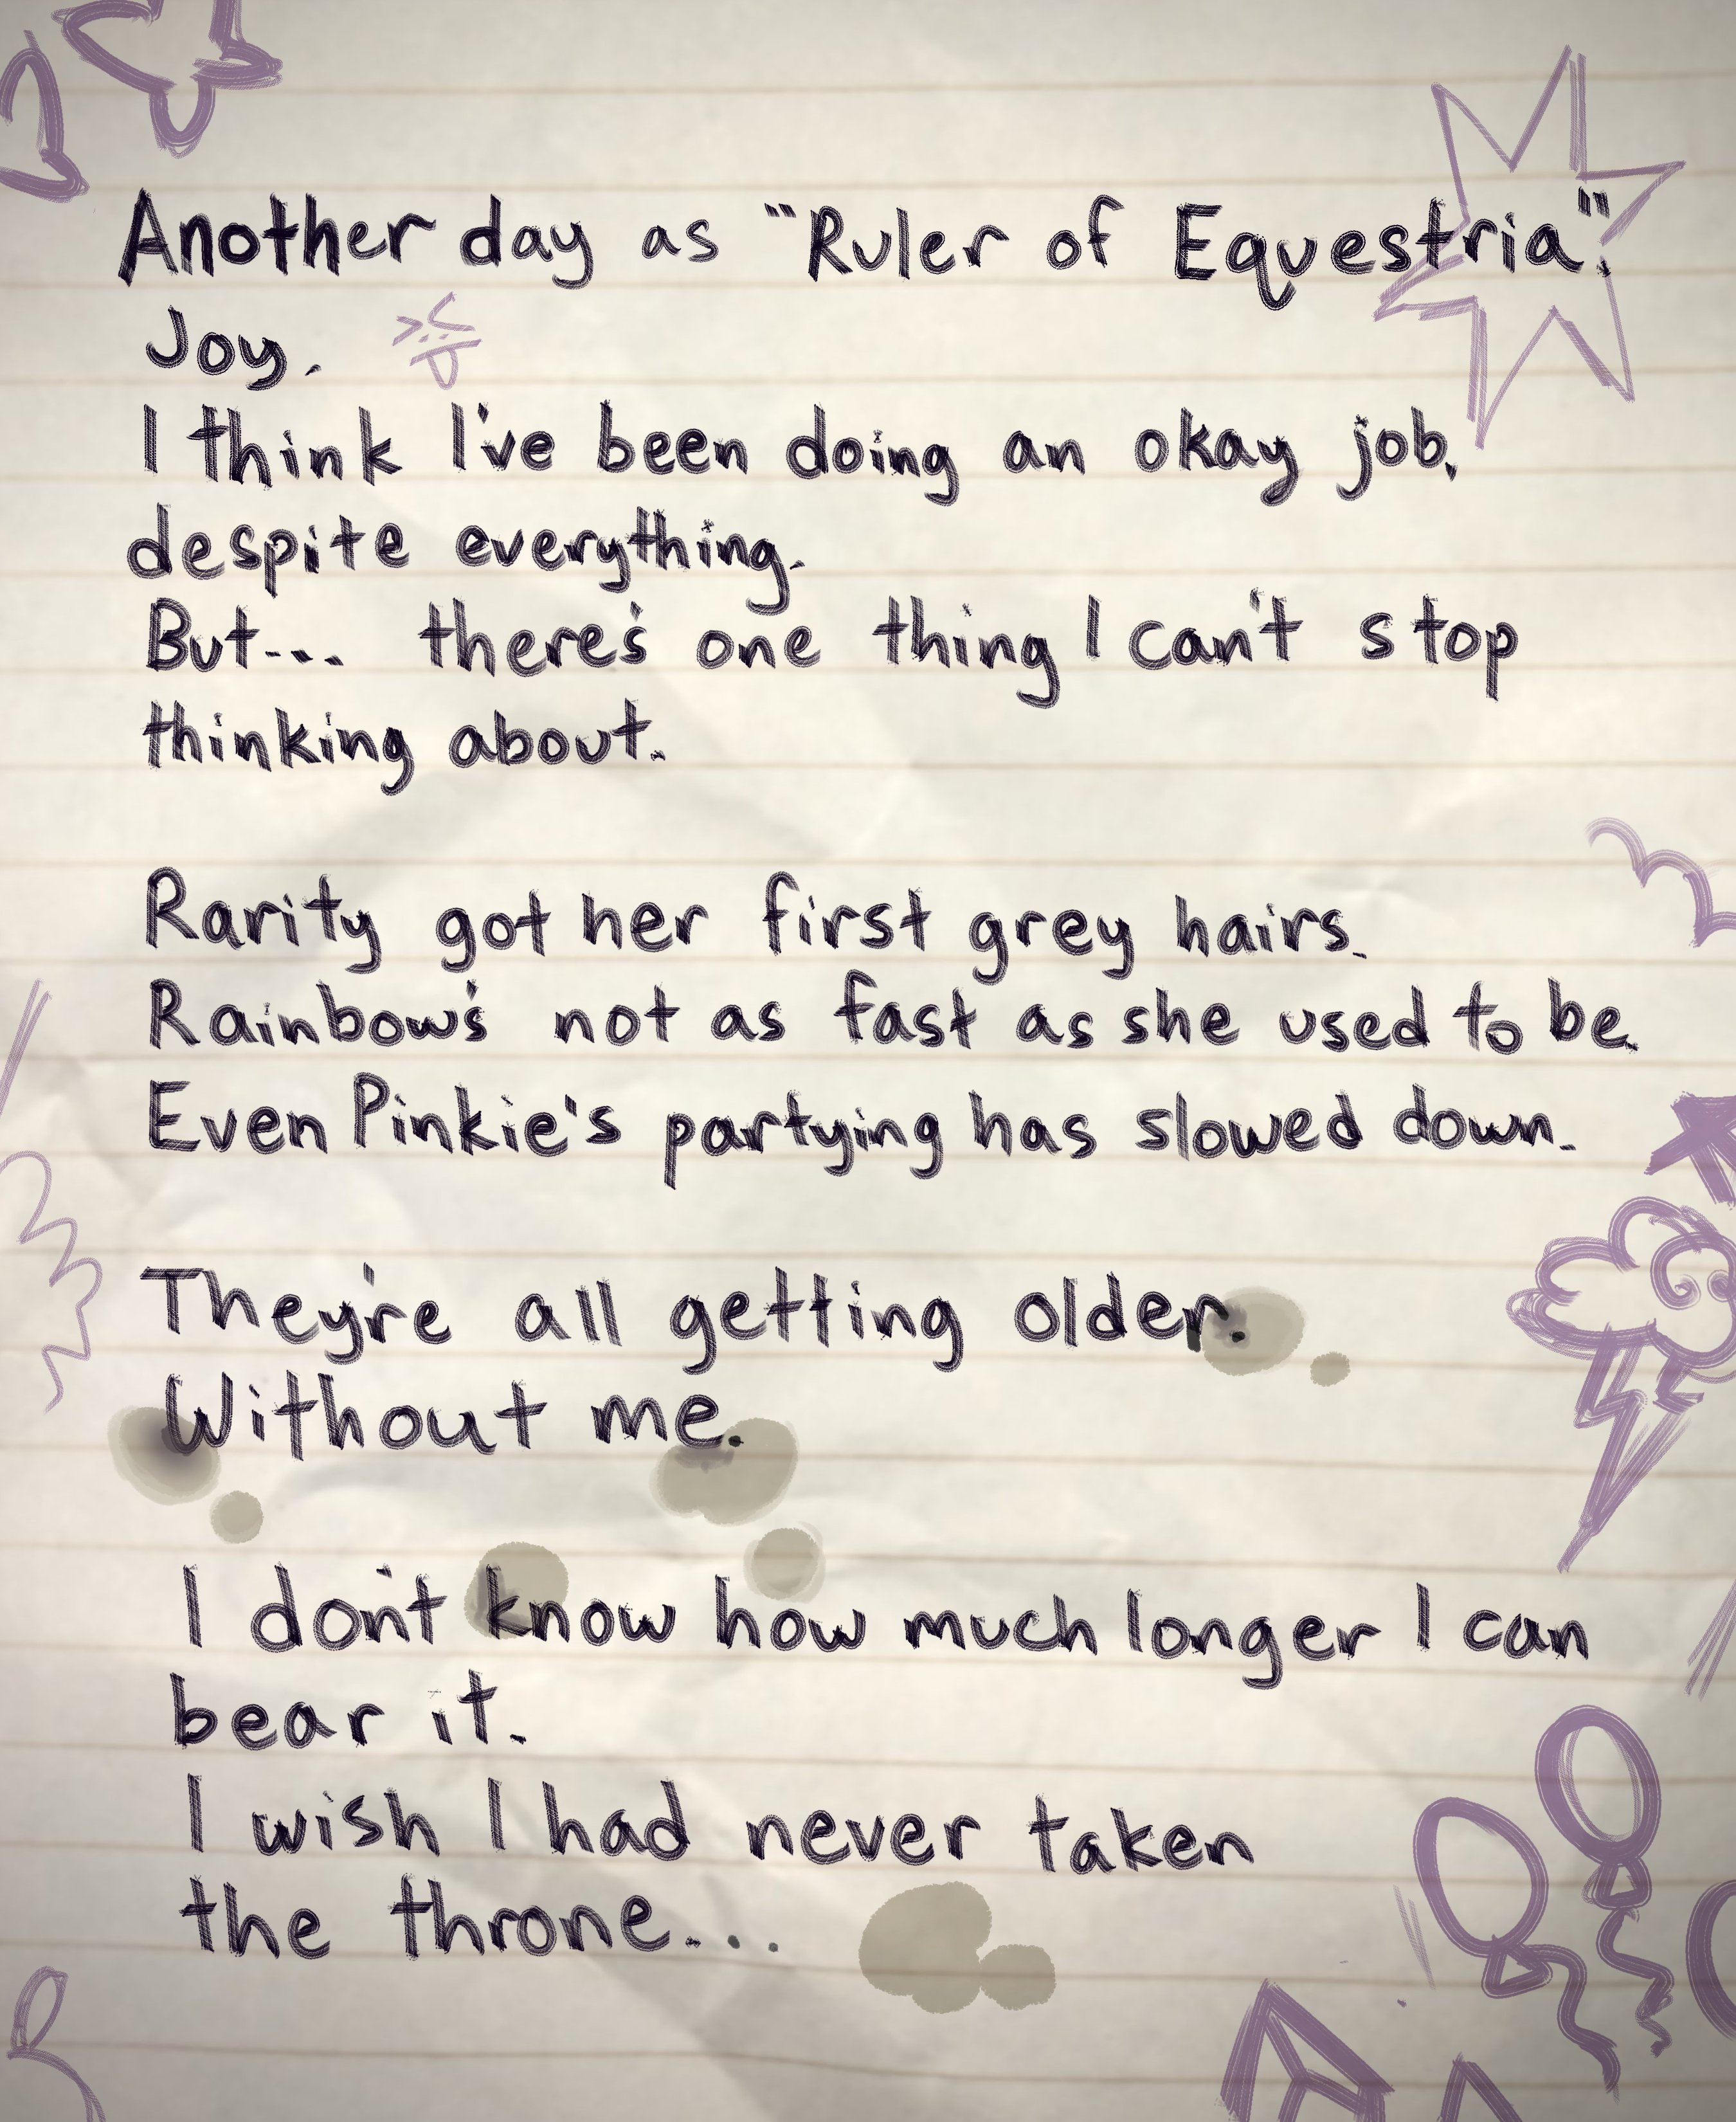 Another day as "Ruler of Equestria".
Joy.
I think I've been doing an okay job,
despite everything.
But... there's one thing I can't stop
thinking about.
Rarity got her first grey hairs.
Rainbow's not as fast as she used to be.
Even Pinkie's partying has slowed down.
They're all getting older.
Without me.
I don't know how much longer I can
bear it.
I wish I had never taken
the throne...